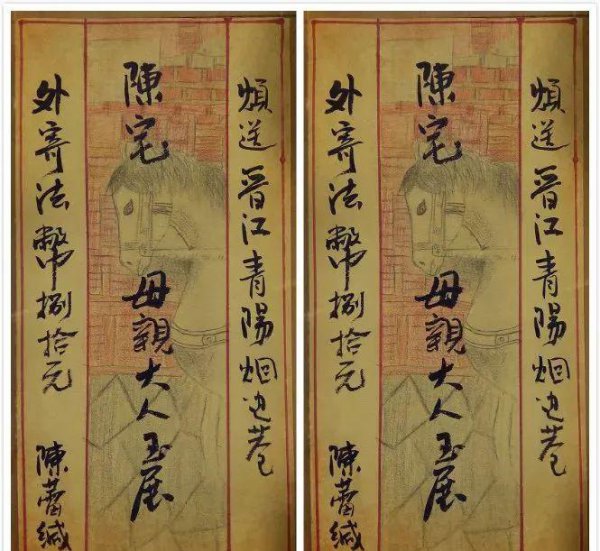 煩送晉江青陽烟边巷
陳宅 母親大人玉展
外寄法幣捌拾元 陳蕾缄
煩送晉江青陽烟边巷
陳宅 母親大人玉展
外寄法幣捌拾元 陳蕾缄